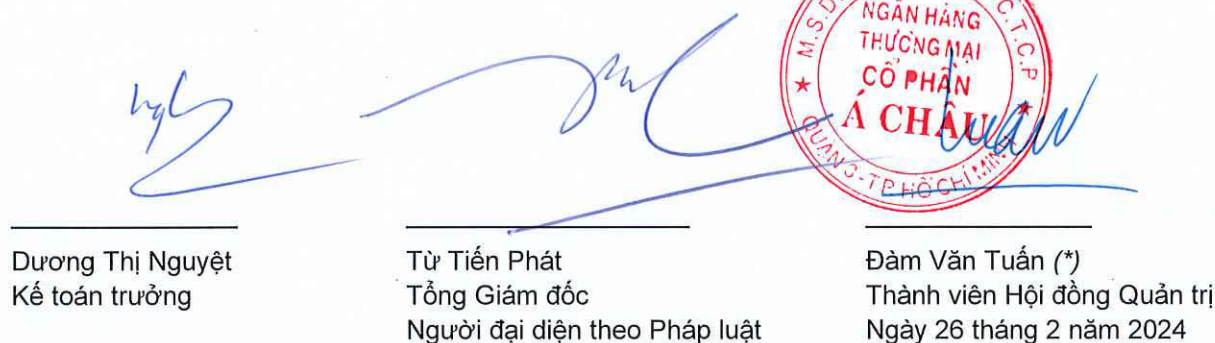 NGÂN HÀNG
THƯƠNG MẠI
CỔ PHẦN
Á CHÂU
QUẬN 3-TP HỒ CHÍ MINH
Dương Thị Nguyệt
Kế toán trưởng
Từ Tiến Phát
Tổng Giám đốc
Người đại diện theo Pháp luật
Đàm Văn Tuấn (*)
Thành viên Hội đồng Quản trị
Ngày 26 tháng 2 năm 2024